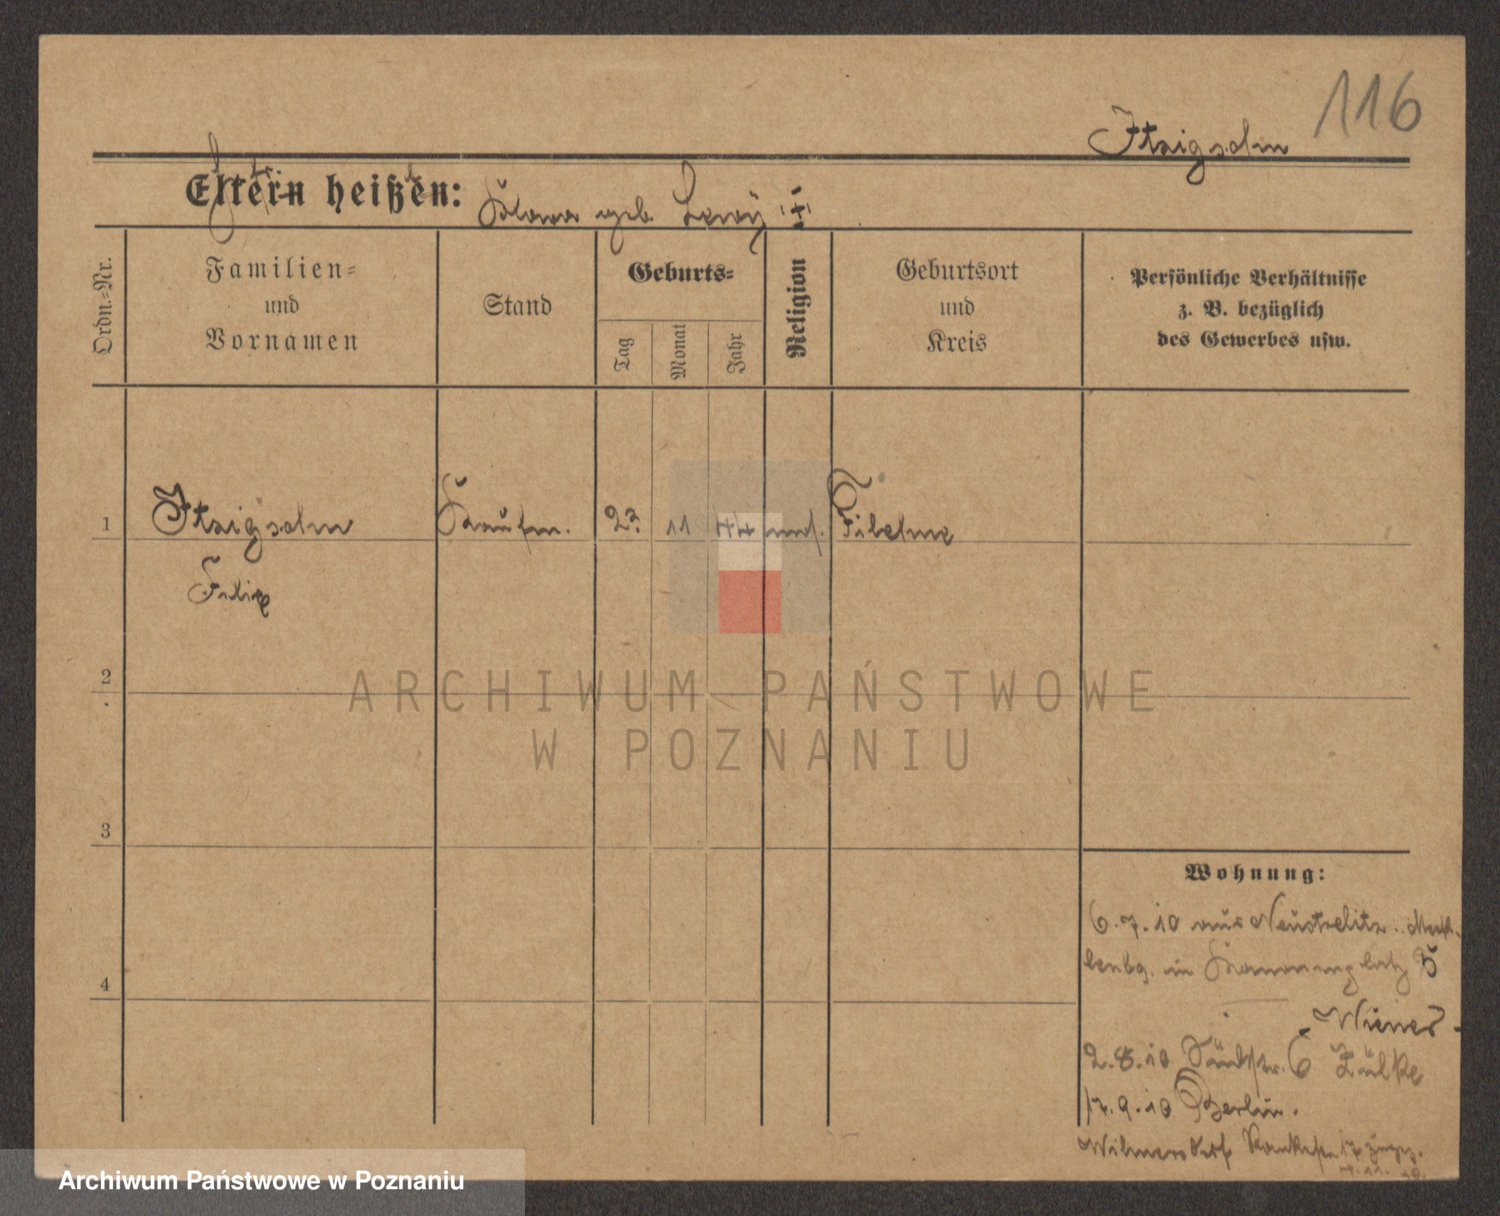 116
Itzigsohn
Eltern heißen:
geb. Levy
Ordn.=Nr.
Familien=
und
Vornamen
Stand
Geburts=
Tag
Monat
Jahr
Religion
Geburtsort
und
Kreis
Persönliche Verhältnisse
z. B. bezüglich
des Gewerbes usw.
1
Itzigsohn
Kaufm.
23
11
44
mos.
Filehne
Felix
2
3
4
ARCHIWUM PAŃSTWOWE
W POZNANIU
Wohnung:
6.7.10 aus Neustrelitz Meck-
lenbg. 5
Wiener
2.8.10 6 Zülke
17.9.10 Berlin.
Wilmersdorf
Archiwum Państwowe w Poznaniu